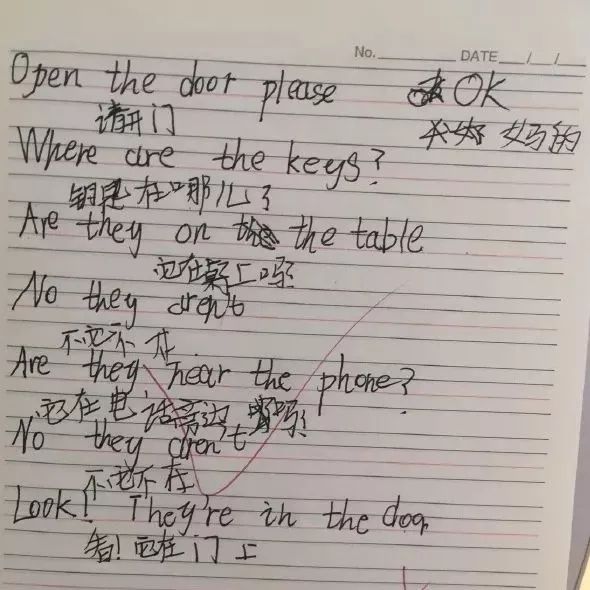 No. DATE / /
Open the door please OK
请开门 妈的
Where are the keys?
钥匙在哪儿?
Are they on the the table
它在桌上吗?
No they aren't
不它不在
Are they near the phone?
它在电话旁边吗?
No they aren't
不它不在
Look! They're in the door,
看!它在门上